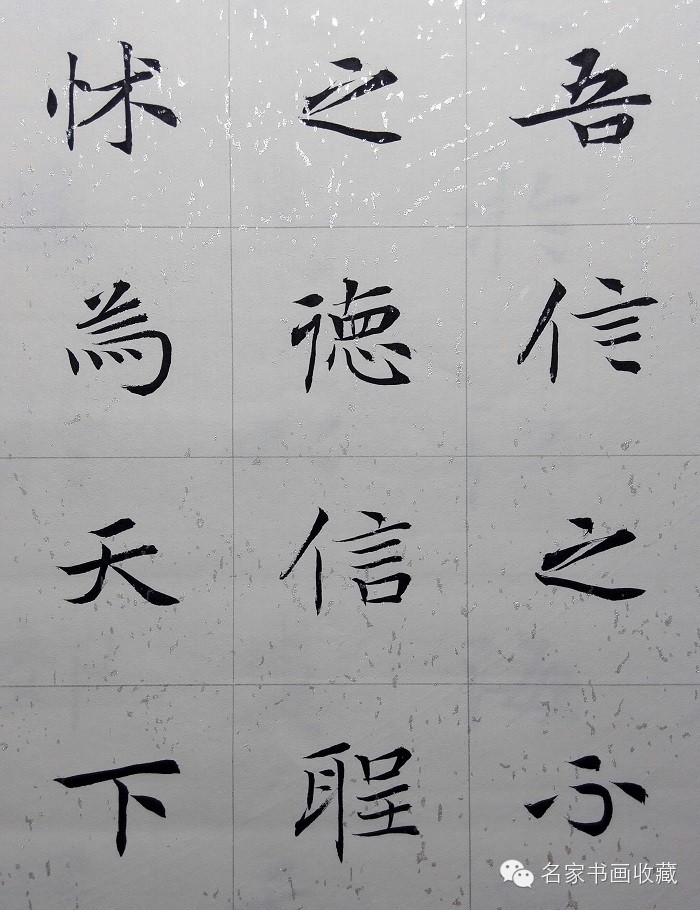 吾信之不
之德信聖
怵為天下
名家书画收藏